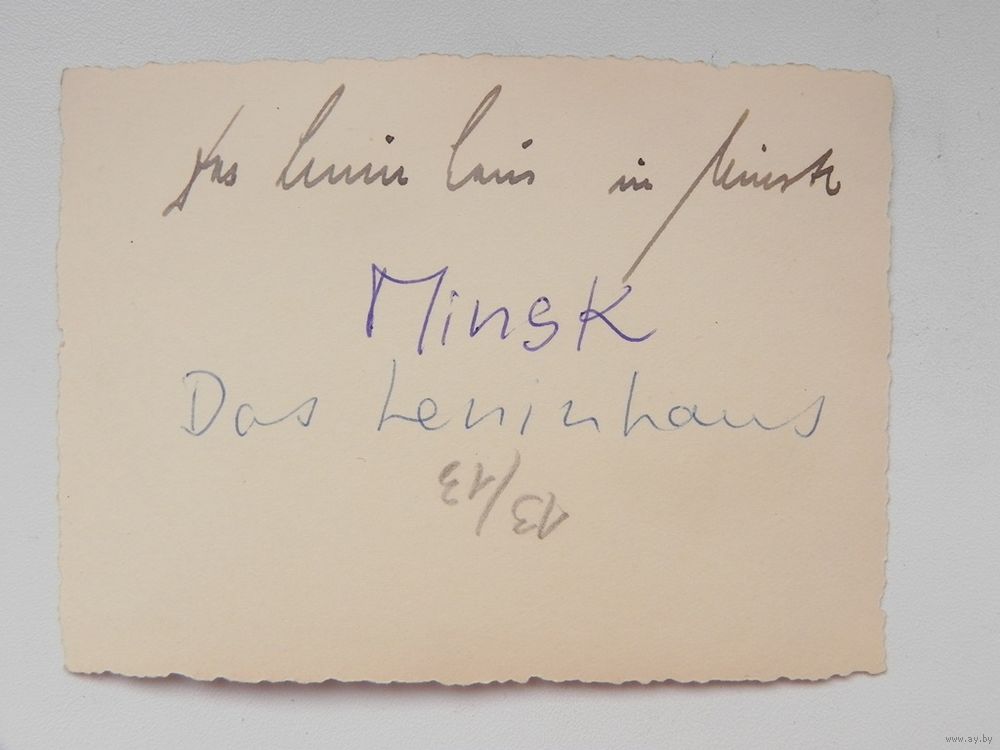 Das Lenin Haus in Minsk
Minsk
Das Leninhaus
13/13
www.ay.by